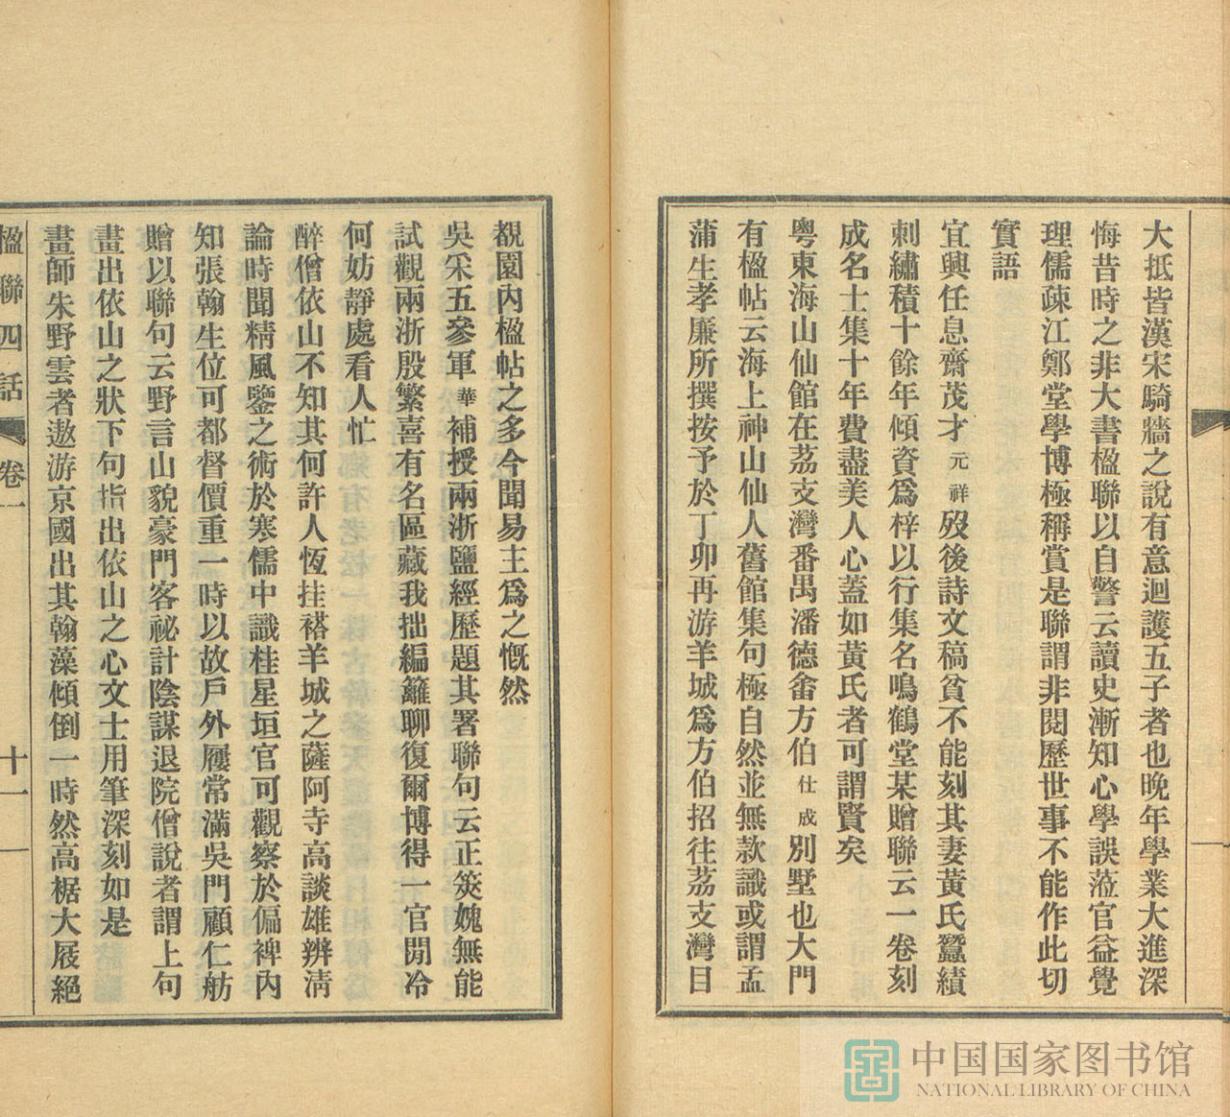 大抵皆漢宋騎牆之說有意迴護五子者也晚年學業大進深
悔昔時之非大書楹聯以自警云讀史漸知心學誤蒞官益覺
理儒疎江鄭堂學博極稱賞是聯謂非閱歷世事不能作此切
實語
宜興任息齋茂才元祥歿後詩文稿貧不能刻其妻黃氏蠶績
刺繡積十餘年傾資爲梓以行集名鳴鶴堂某贈聯云一卷刻
成名士集十年費盡美人心蓋如黃氏者可謂賢矣
粵東海山仙館在荔支灣番禺潘德畬方伯仕成別墅也大門
有楹帖云海上神山仙人舊館集句極自然並無款識或謂孟
蒲生孝廉所撰按予於丁卯再游羊城爲方伯招往荔支灣目
覩園內楹帖之多今聞易主爲之慨然
吳采五參軍華補授兩浙鹽經歷題其署聯句云正筴媿無能
試觀兩浙殷繁喜有名區藏我拙編籬聊復爾博得一官閒冷
何妨靜處看人忙
醉僧依山不知其何許人恆挂褡羊城之薩阿寺高談雄辨淸
論時聞精風鑒之術於寒儒中識桂星垣官可觀察於偏裨內
知張翰生位可都督價重一時以故戶外屨常滿吳門顧仁舫
贈以聯句云野言山貌豪門客祕計陰謀退院僧說者謂上句
畫出依山之狀下句指出依山之心文士用筆深刻如是
畫師朱野雲者遨游京國出其翰藻傾倒一時然高椐大屐絕
楹聯四話 卷一 十一
中国国家图书馆
NATIONAL LIBRARY OF CHINA